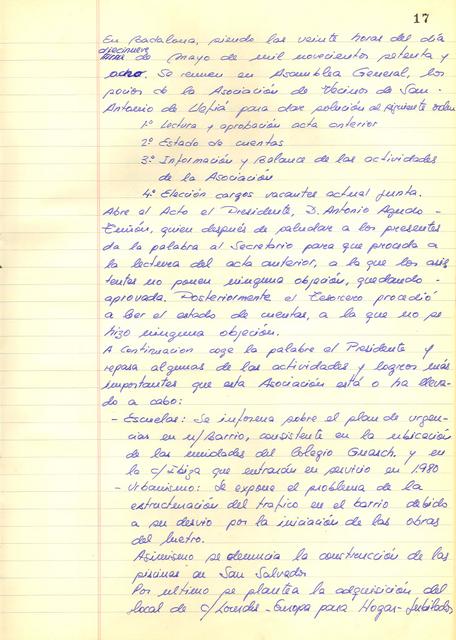 17
En Badalona, siendo las veinte horas del día
diecinueve de Mayo de mil novecientos setenta y
ocho. Se reunen en Asamblea General, los
socios de la Asociación de Vecinos de San-
Antonio de Llefiá para dar solución al siguiente orden
1º Lectura y aprobación acta anterior
2º Estado de cuentas
3º Información y Balance de las actividades
de la Asociación
4º Elección cargos vacantes actual junta.
Abre el Acto el Presidente, D. Antonio Agudo-
quien después de saludar a los presentes
da la palabra al Secretario para que proceda a
la lectura del acta anterior, a la que los asis
tentes no ponen ninguna objeción, quedando-
aprovada. Posteriormente el Tesorero procedió
a leer el estado de cuentas, a la que no se
hizo ninguna objeción.
A continuacion coge la palabra el Presidente y
repasa algunas de las actividades y logros más
importantes que esta Asociación está o ha lleva-
do a cabo:
- Escuelas: Se informa sobre el plan de urgen-
cias en n/Barrio, consistente en la ubicación
de las unidades del Colegio Guasch. y en
la c/Ibiza que entrarán en servicio en 1980
- Urbanismo: Se expone el problema de la
estructuración del trafico en el barrio debido
a su desvio por la iniciación de las obras
del Metro.
Asimismo se denuncia la construcción de las
piscinas en San Salvador
Por ultimo se plantea la adquisición del
local de c/Lourdes-Europa para Hogar-Jubilados